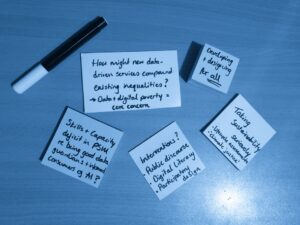 How might new data-
driven services compound
existing inequalities?
→ Data + digital poverty =
core concern
Developing
+ designing
for all
Skills + Capacity
deficit in PSM
re being good data
guardians + informed
consumers of AI?
Interventions?
Public discourse
• Digital Literacy
• Participatory
design
Taking
Sustainability
seriously
climate justice